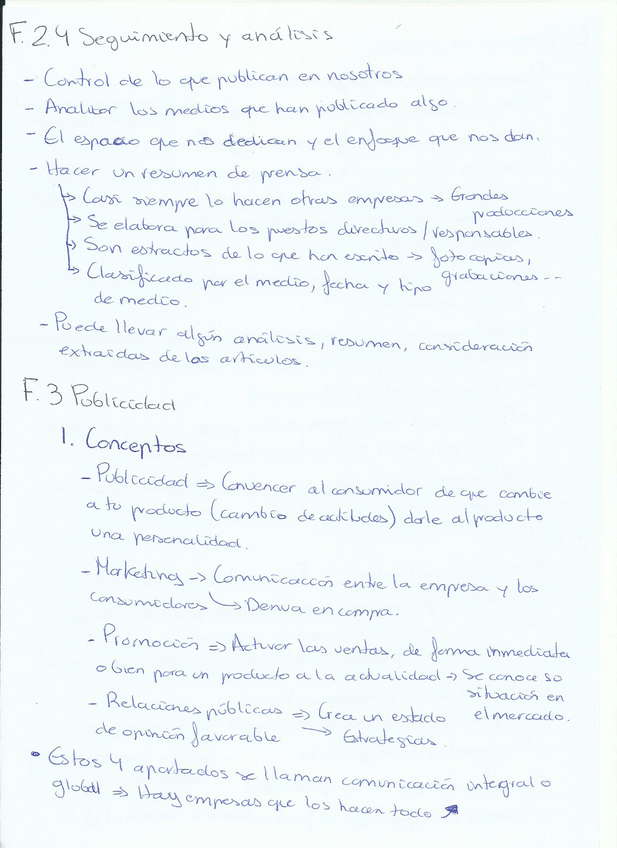 F. 2.4 Seguimiento y análisis
- Control de lo que publican en nosotros
- Analizar los medios que han publicado algo.
- El espacio que nos dedican y el enfoque que nos dan.
- Hacer un resumen de prensa.
↳ Casi siempre lo hacen otras empresas → Grandes producciones
↳ Se elabora para los puestos directivos / responsables.
↳ Son extractos de lo que han escrito → fotocopias, grabaciones...
↳ Clasificado por el medio, fecha y tipo
de medio.
- Puede llevar algún análisis, resumen, consideración
extraidas de los artículos.
F. 3 Publicidad
1. Conceptos
- Publicidad ⇒ Convencer al consumidor de que cambie
a tu producto (cambio de actitudes) darle al producto
una personalidad.
- Marketing → Comunicación entre la empresa y los
consumidores ↳ Deriva en compra.
- Promoción ⇒ Activar las ventas, de forma inmediata
o bien para un producto a la actualidad → Se conoce su
situación en
el mercado.
- Relaciones públicas ⇒ Crea un estado
de opinión favorable → Estrategias.
• Estos 4 apartados se llaman comunicación integral o
global ⇒ Hay empesas que los hacen todo